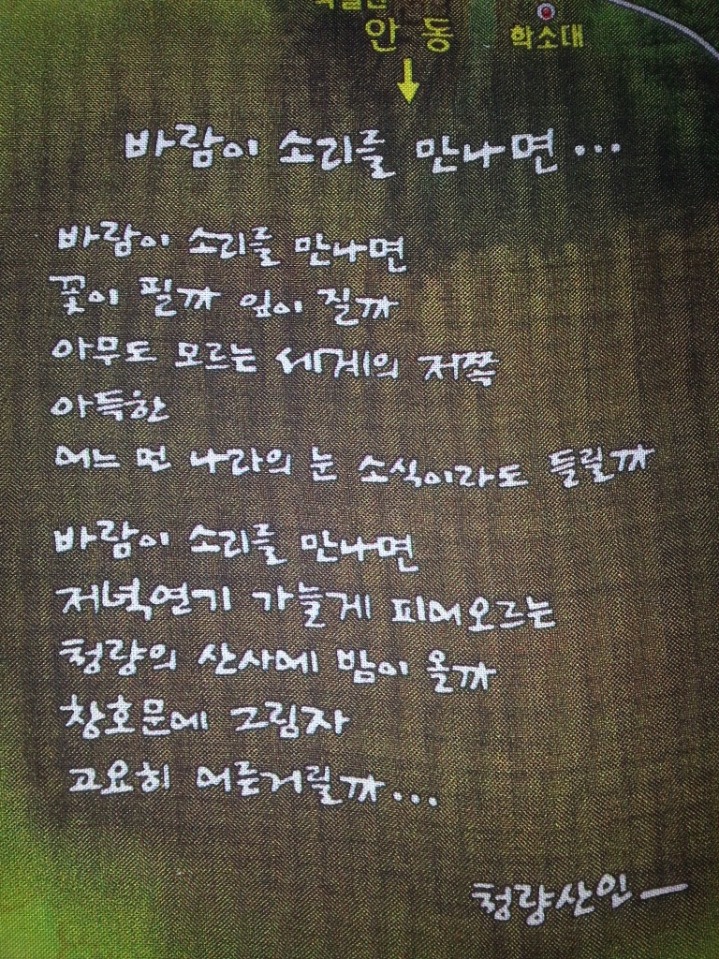 안동
학소대
바람이 소리를 만나면...
바람이 소리를 만나면
꽃이 필까 잎이 질까
아무도 모르는 세계의 저쪽
아득한
어느 먼 나라의 눈 소식이라도 들릴까
바람이 소리를 만나면
저녁연기 가늘게 피어오르는
청량의 산사에 밤이 올까
창호문에 그림자
고요히 어른거릴까...
청량산인